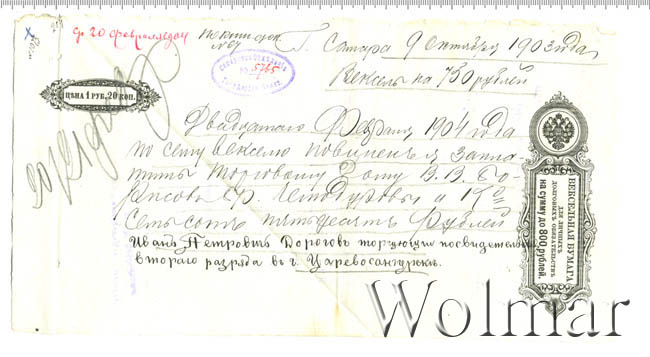 до 20 февраля 904
Г. Самара 9 Октября 1903 года
Вексель на 750 рублей
№ 5765
ЦѢНА 1 РУБ. 20 КОП.
Двадцатаго Февраля 1904 года
по сему векселю повиненъ я запла-
тить торговому дому В. В. Бо-
рисовъ, Ф. и Кº
Семьсотъ пятьдесятъ рублей
Иванъ Петровичъ Дороговъ торгующій по свидетельству
втораго разряда въ г. Царевосанчурскѣ.
ВЕКСЕЛЬНАЯ БУМАГА
ДЛЯ ЛИЧНЫХЪ
ДОЛГОВЫХЪ ОБЯЗАТЕЛЬСТВЪ
на сумму до 800 рублей.
Wolmar